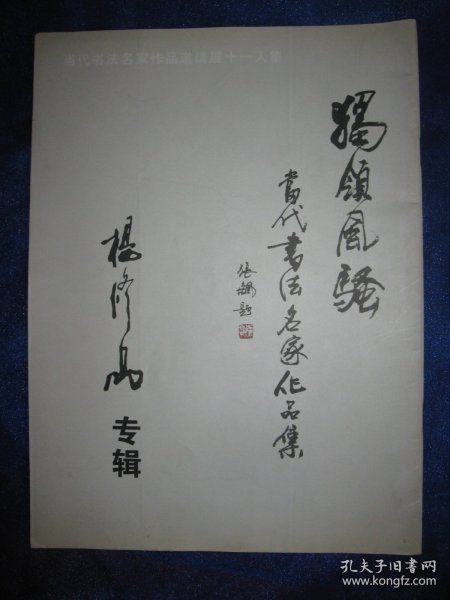 当代书法名家作品邀请展十一人集
獨領風騷
當代書法名家作品集
張飆题
楊修品
专辑
孔夫子旧书网
www.kongfz.com